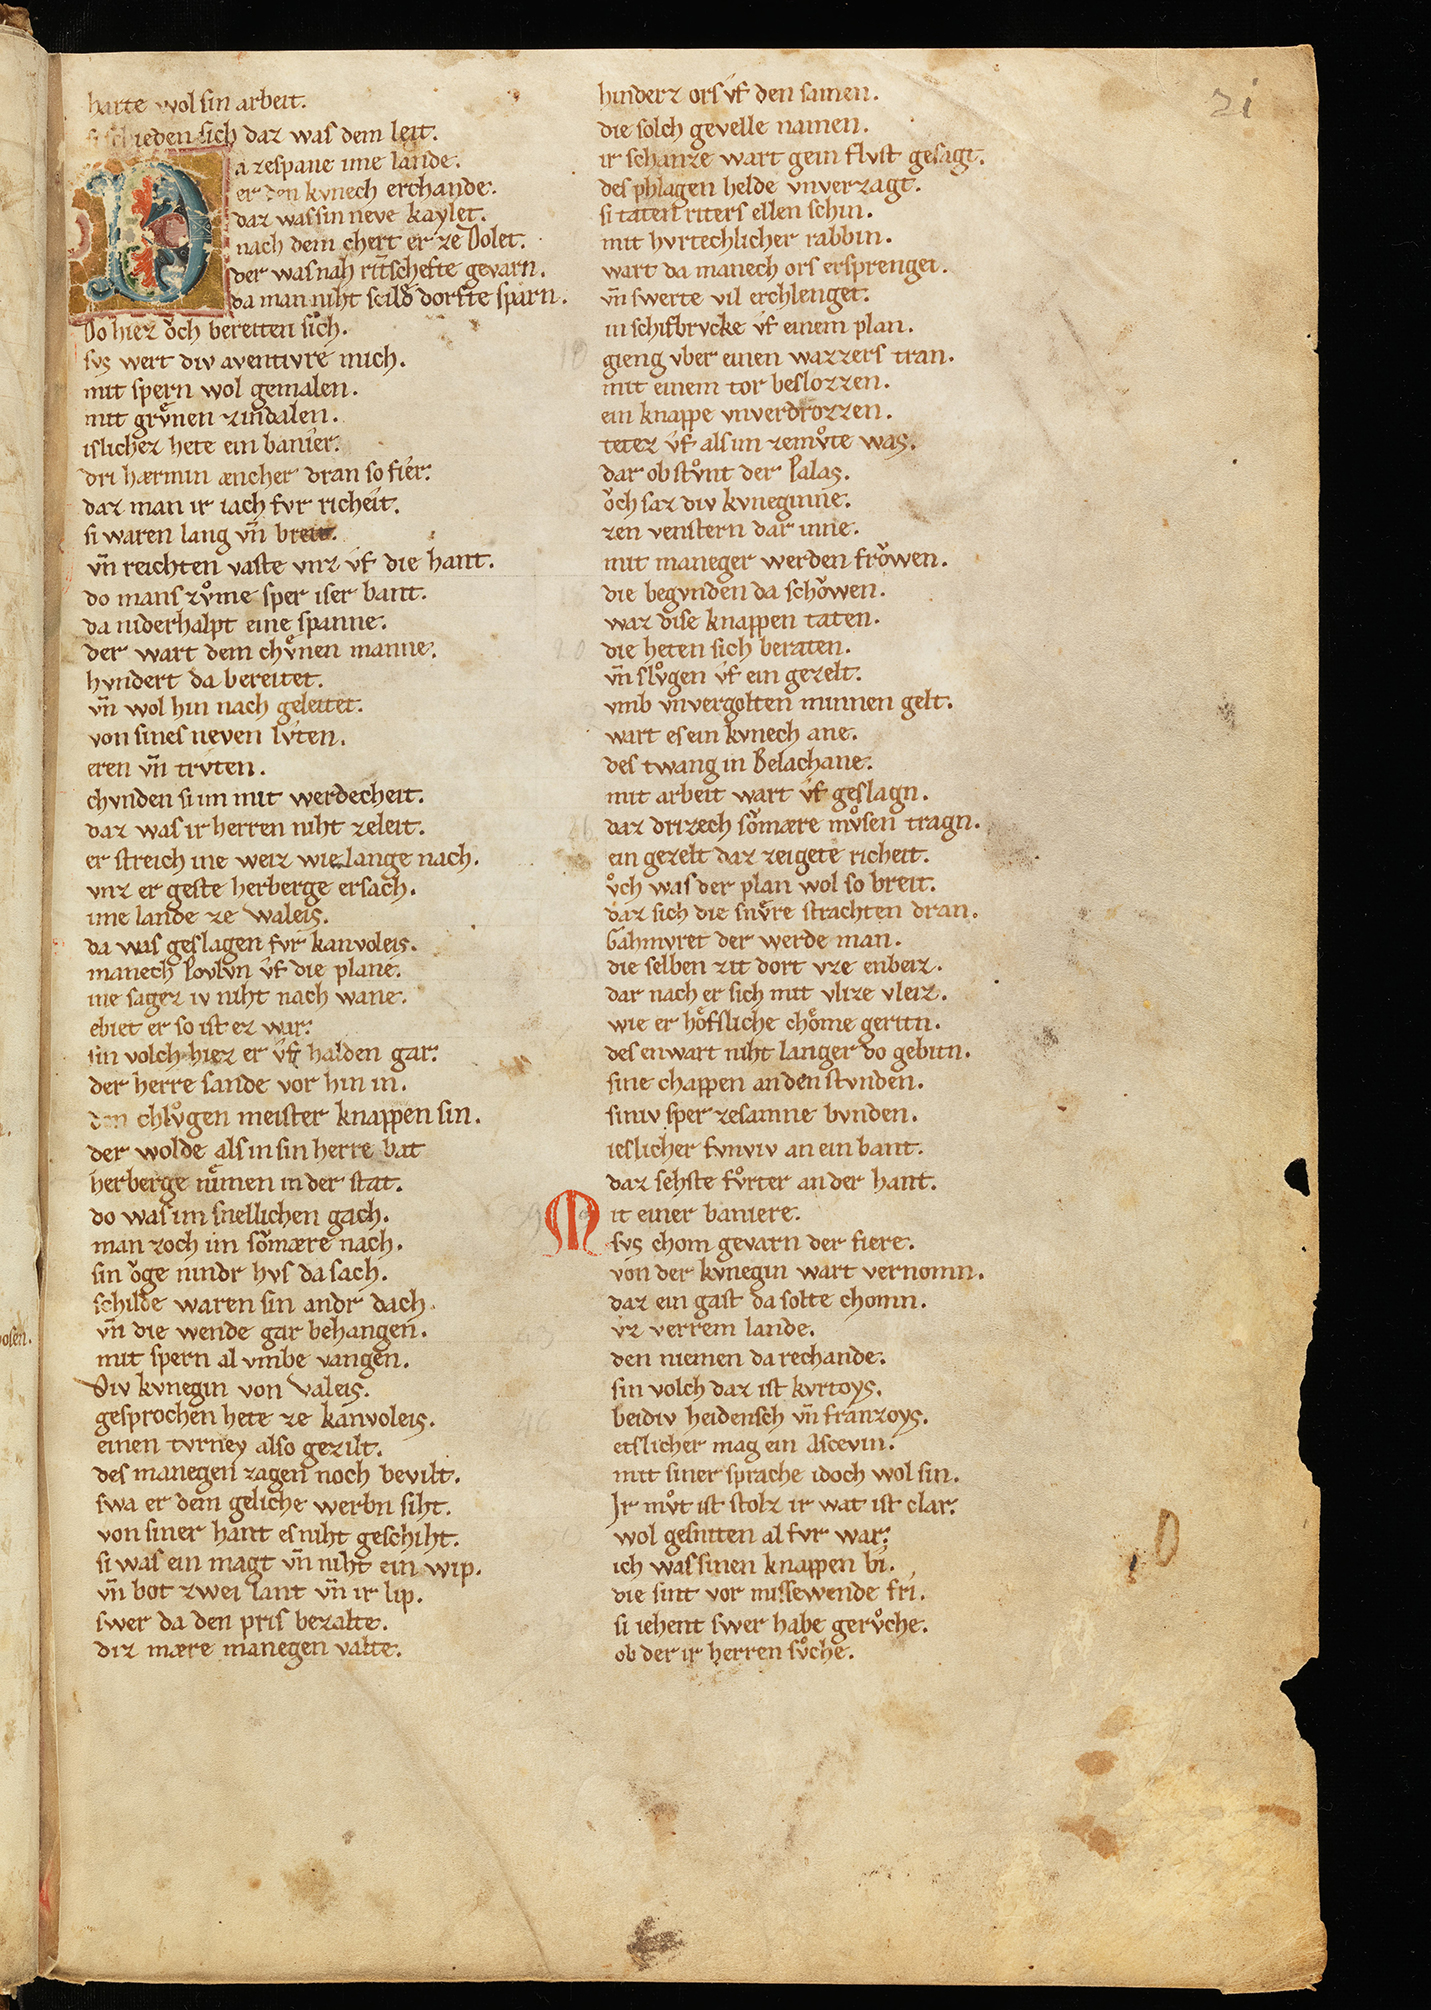 21
harte wol sin arbeit.
schieden sich daz was dem leit.
Da zespane ime lande.
er den kvnech erchande.
daz was sin neve kaylet.
nach dem chert er ze Dolet.
der was nah rit̄schefte gevarn.
da man niht scild dorfte sparn.
Do hiez ǒch bereiten sich.
svs wert div aventivre mich.
mit spern wol gemalen.
mit grv̊nen zindalen.
islichez hete ein banier.
dri hærmin æncher dran so fier.
daz man ir iach fvr richeit.
si waren lang vn̄ breit.
vn̄ reichten vaste vnz v́f die hant.
do mans zv̊me sper iser bant.
da niderhalpt eine spanne.
der wart dem chv̊nen manne.
hvndert da bereitet.
vn̄ wol hin nach geleitet.
von sines neven lv́ten.
eren vn̄ trvten.
chvnden si im mit werdecheit.
daz was ir herren niht zeleit.
er streich ine weiz wie lange nach.
vnz er geste herberge ersach.
ime lande ze Waleis.
da was geslagen fvr kanvoleis.
manech Povlvn v́f die plane.
ine sagez iv niht nach wane.
ebiet er so ist ez war.
sin volch hiez er v́f halden gar.
der herre sande vor hin in.
den chlv̊gen meister knappen sin.
der wolde als in sin herre bat
herberge nů̈men in der stat.
do was im snellichen gach.
man zoch im sǒmære nach.
sin ǒge nindr hvs da sach.
schilde waren sin andr dach.
vn̄ die wende gar behangen.
mit spern al vmbe vangen.
Div kvnegin von Valeis.
gesprochen hete ze kanvoleis.
einen tvrney also gezilt.
des manegen zagen noch bevilt.
swa er dem geliche werbn siht.
von siner hant es niht geschiht.
si was ein magt vn̄ niht ein wip.
vn̄ bot zwei lant vn̄ ir lip.
swer da den pris bezalte.
diz mære manegen valte.
hinderz ors v́f den samen.
die solch gevelle namen.
ir schanze wart gein flvst gesagt.
des phlagen helde vnverzagt.
si taten riters ellen schin.
mit hvrtechlicher rabbin.
wart da manech ors ersprenget.
vn̄ swerte vil erchlenget.
in schifbrvcke v́f einem plan.
gieng vber einen wazzers tran.
mit einem tor beslozzen.
ein knappe vnverdrozzen.
tetez v́f als im zemv̊te was.
dar ob stv̊nt der Palas.
ǒch saz div kvneginne.
zen venstern dar inne.
mit maneger werden frǒwen.
die begvnden da schǒwen.
waz dise knappen taten.
die heten sich beraten.
vn̄ slv̊gen v́f ein gezelt.
vmb vnvergolten minnen gelt.
wart es ein kvnech ane.
des twang in Belachane.
mit arbeit wart v́f geslagn.
daz drizech sǒmære mv̊sen tragn.
ein gezelt daz zeigete richeit.
ǒch was der plan wol so breit.
daz sich die snv̊re strachten dran.
Gahmvret der werde man.
die selben zit dort vze enbeiz.
dar nach er sich mit vlize vleiz.
wie er hǒfsliche chǒme geritn.
des enwart niht langer do gebitn.
sine chappen an den stvnden.
siniv sper zesamne bvnden.
ieslicher fvnviv an ein bant.
daz sehste fv̊rter an der hant.
Mit einer baniere.
svs chom gevarn der fiere.
von der kvnegin wart vernomn.
daz ein gast da solte chomn.
vz verrem lande.
den niemen da rechande.
sin volch daz ist kvrtoys.
beidiv heidensch vn̄ franzoys.
etslicher mag ein Ascevin.
mit siner sprache idoch wol sin.
Ir mv̊t ist stolz ir wat ist clar.
wol gesniten al fvr war.
ich was sinen knappen bi.
die sint vor missewende fri.
si iehent swer habe gerv̊che.
ob der ir herren sv̊che.